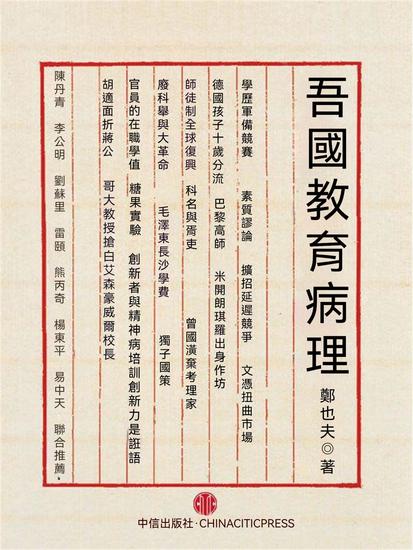 吾國教育病理
鄭也夫◎著
學歷軍備競賽 素質謬論 擴招延遲競爭 文憑扭曲市場
德國孩子十歲分流 巴黎高師 米開朗琪羅出身作坊
師徒制全球復興 科名與胥吏 曾國潢棄考理家
廢科舉與大革命 毛澤東長沙學費 獨子國策
官員的在職學值 糖果實驗 創新者與精神病培訓創新力是誑語
胡適面折蔣公 哥大教授搶白艾森豪威爾校長
陳丹青 李公明 劉蘇里 雷頤 熊丙奇 楊東平 易中天 聯合推薦·
中信出版社·CHINACITICPRESS